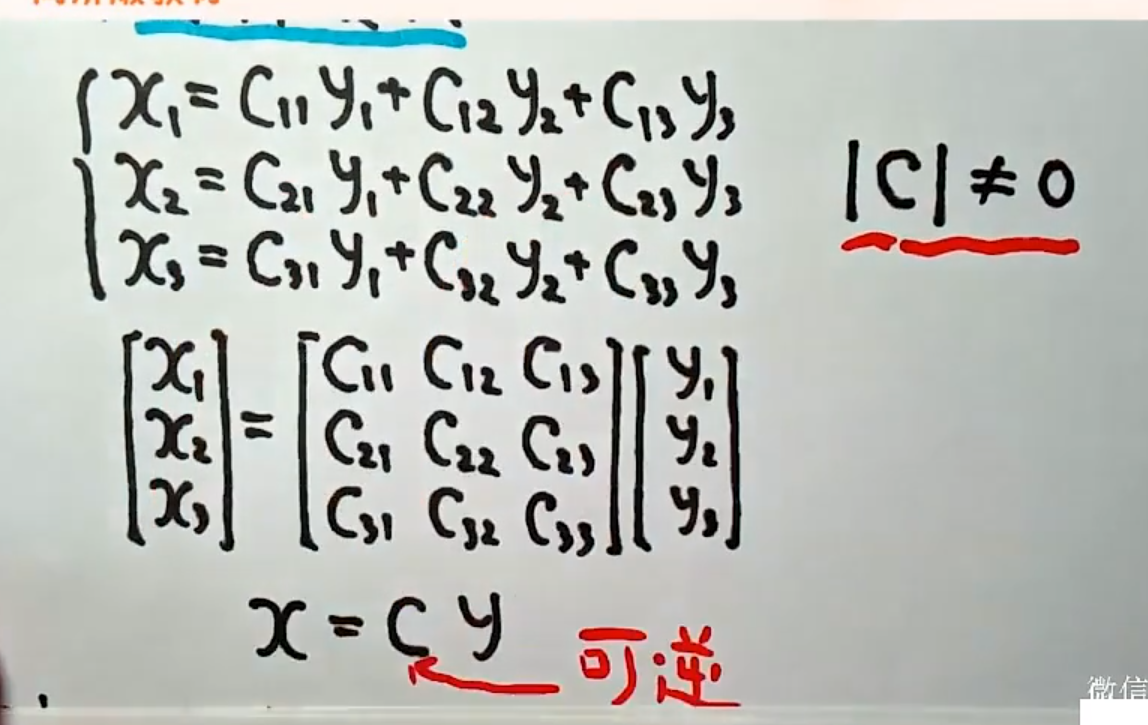 x₁ = C₁₁ y₁ + C₁₂ y₂ + C₁₃ y₃
x₂ = C₂₁ y₁ + C₂₂ y₂ + C₂₃ y₃
x₃ = C₃₁ y₁ + C₃₂ y₂ + C₃₃ y₃
|C| ≠ 0
[x₁] = [C₁₁ C₁₂ C₁₃] [y₁]
[x₂] [C₂₁ C₂₂ C₂₃] [y₂]
[x₃] [C₃₁ C₃₂ C₃₃] [y₃]
x = C y
可逆
微信